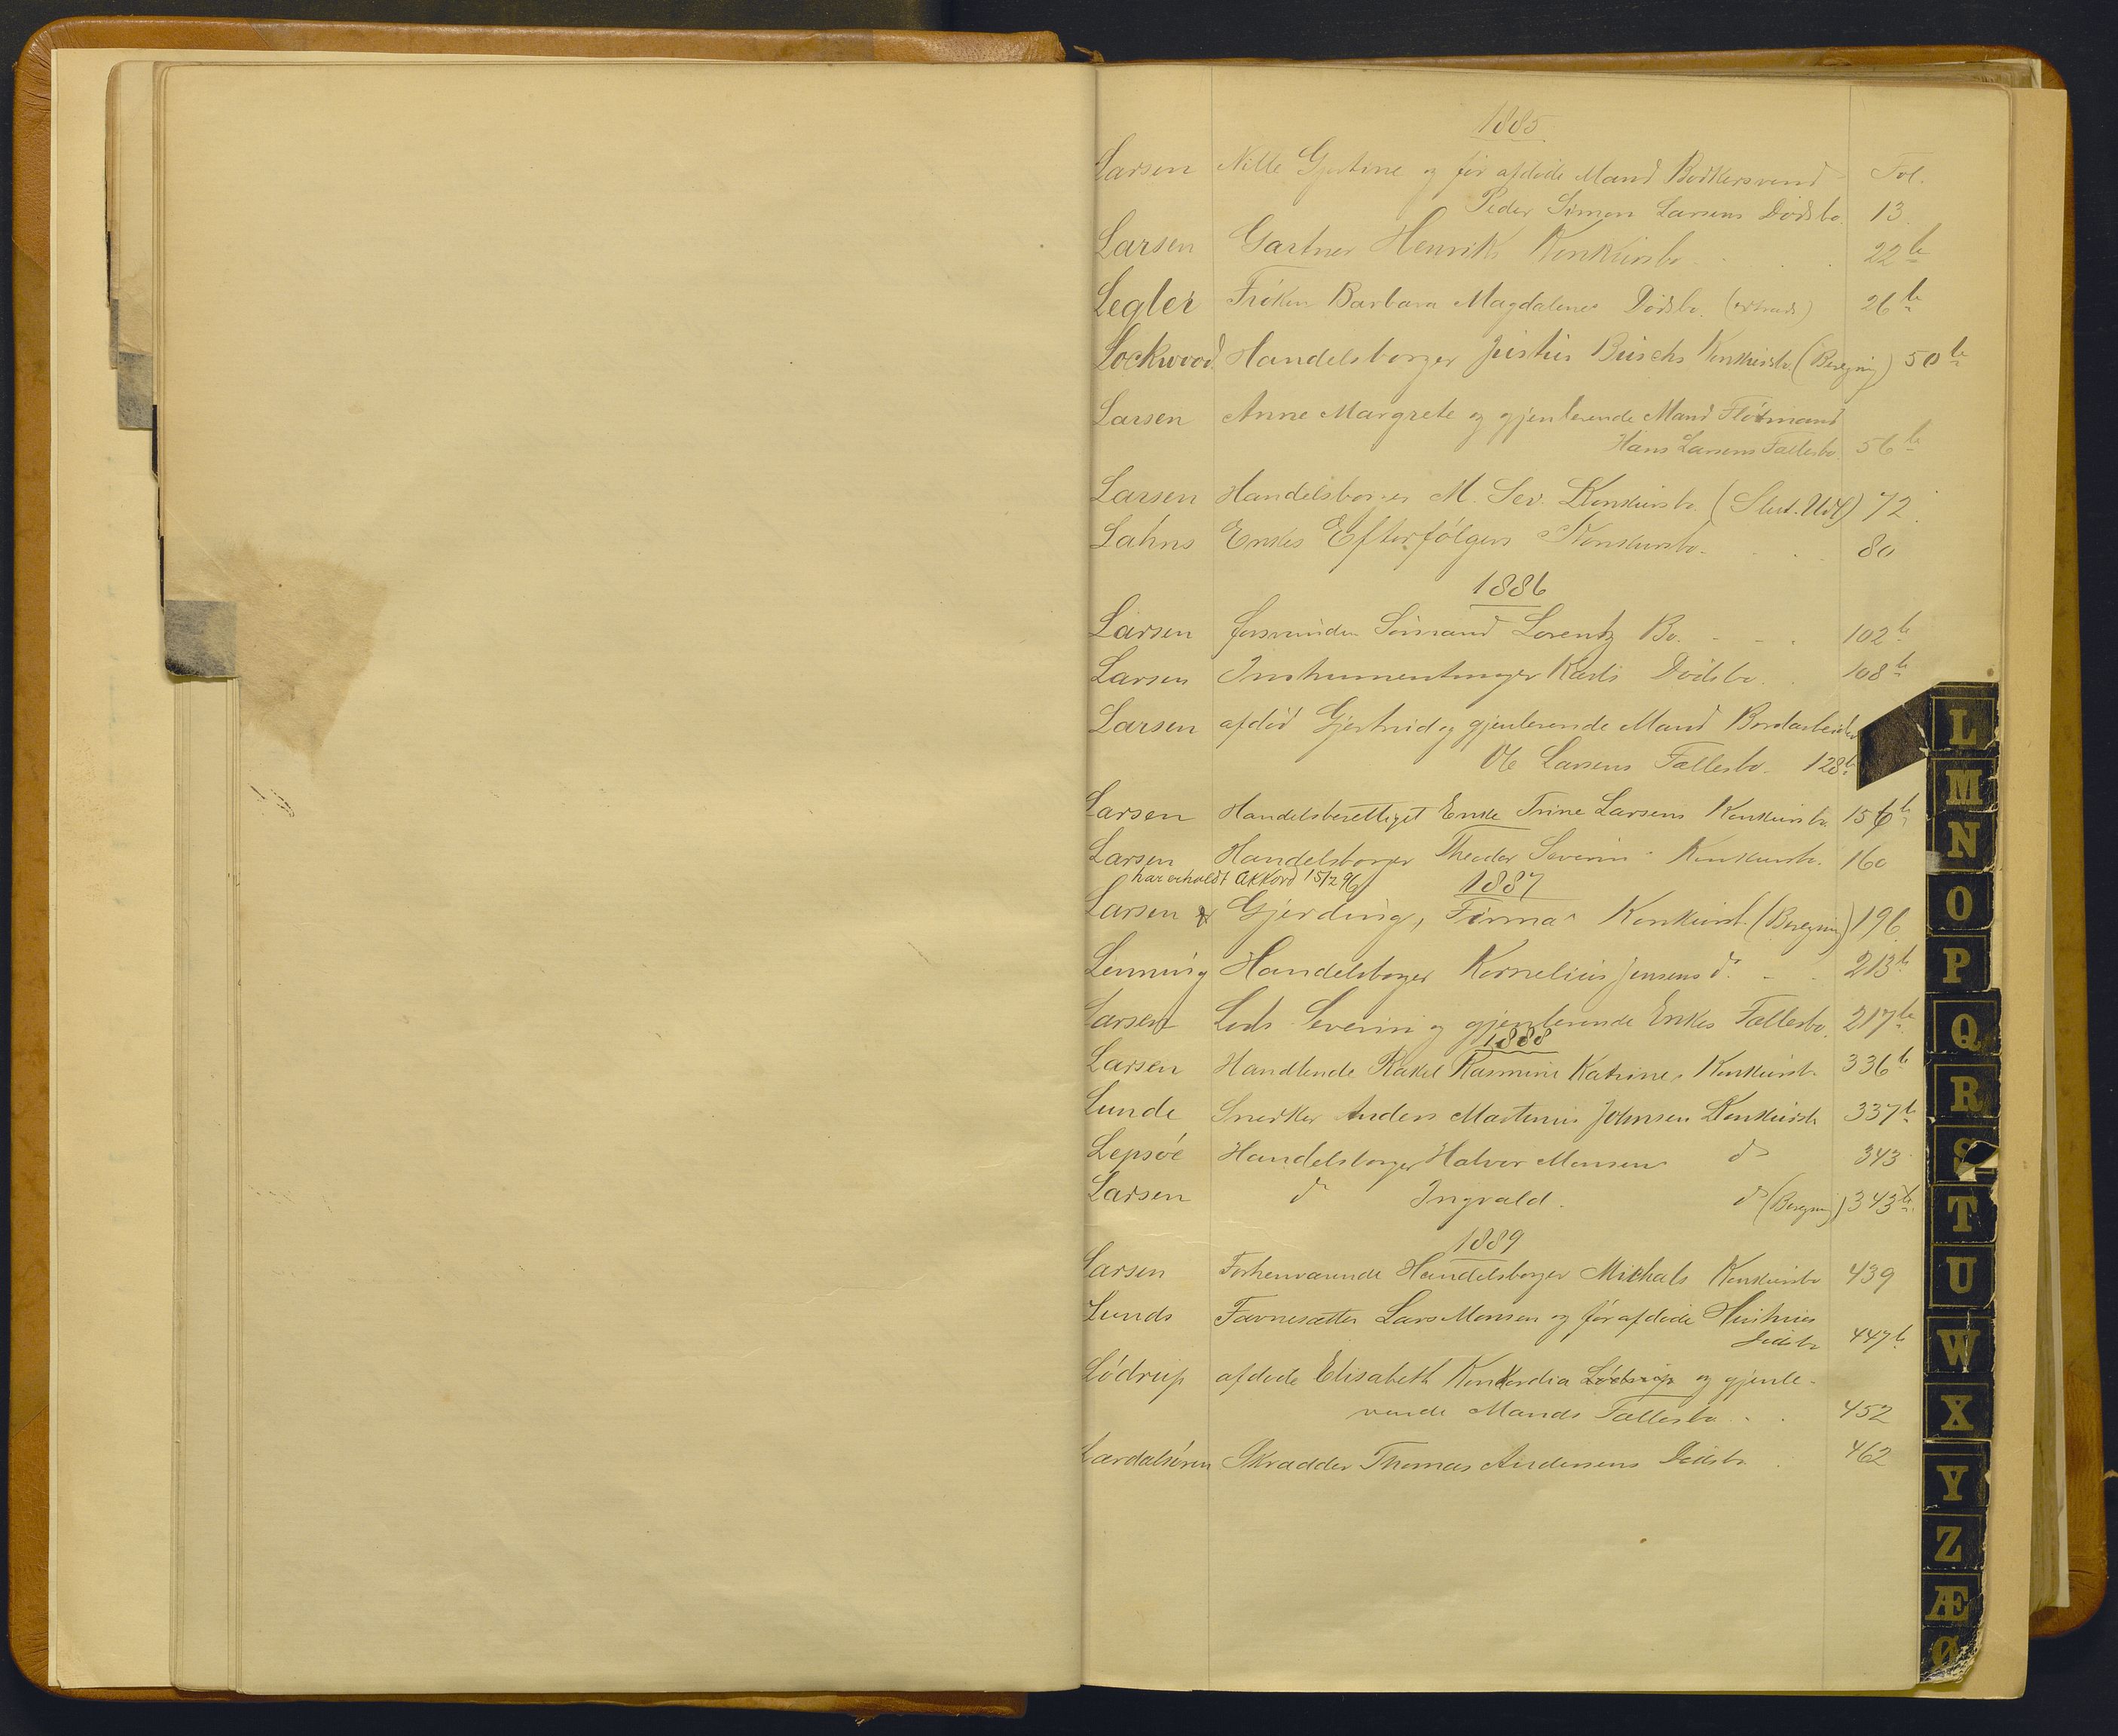 1885
Larsen Nille Gjertine og før afdøde Mand Bødkersvend Fol.
Peder Simon Larsens Dødsbo. 13
Larsen Gartner Henrik Konkursbo 22b
Legler Frøken Barbara Magdalenes Dødsbo. 26b
Lockwood Handelsborger Justus Buschs Konkursbo (Beregning) 50b
Larsen Anne Margrete og gjenlevende Mand Flotmand
Hans Larsens Fællesbo. 56b
Larsen Handelsborger M. Sev. Konkursbo. (Slut. Udl) 72
Lahns Enkes Efterfølgers Konkursbo. 80
1886
Larsen forsvunden Sømand Lorentz Bo. 102b
Larsen Instrumentmager Karls Dødsbo. 108b
Larsen afdød Gjertrud og gjenlevende Mand Bordarbeider
Ole Larsens Fællesbo. 128b
Larsen Handelsberettiget Enke Trine Larsens Konkursbo 156b
Larsen Handelsborger Theodor Severin Konkursbo. 160
har erholdt Akkord 15/2 96 1887
Larsen & Gjerding, Firma Konkursb. (Beregning) 196
Lenning Handelsborger Kornelius Jensens do 213b
Larsen Lods Severin og gjenlevende Enkes Fællesbo. 217b
1888
Larsen Handlende Rakel Rasmine Katrines Konkursb. 336b
Lunde Snedker Anders Martinus Johnsen Konkursb 337b
Lepsøe Handelsborger Halvor Monsens do 343
Larsen do Ingvald. do (Beregning) 343b
1889
Larsen Forhenværende Handelsborger Michals Konkursbo 439
Lunds Favnesætter Lars Monsen og før afdøde Hustrues
Dødsbo 447b
Lødrup afdøde Elisabeth Konkordia Lødrup og gjenle-
vende Mands Fællesbo 452
Lærdalsøren Skrædder Thomas Andersens Dødsbo 462
L
M
N
O
P
Q
R
S
T
U
W
X
Y
Z
Æ
Ø